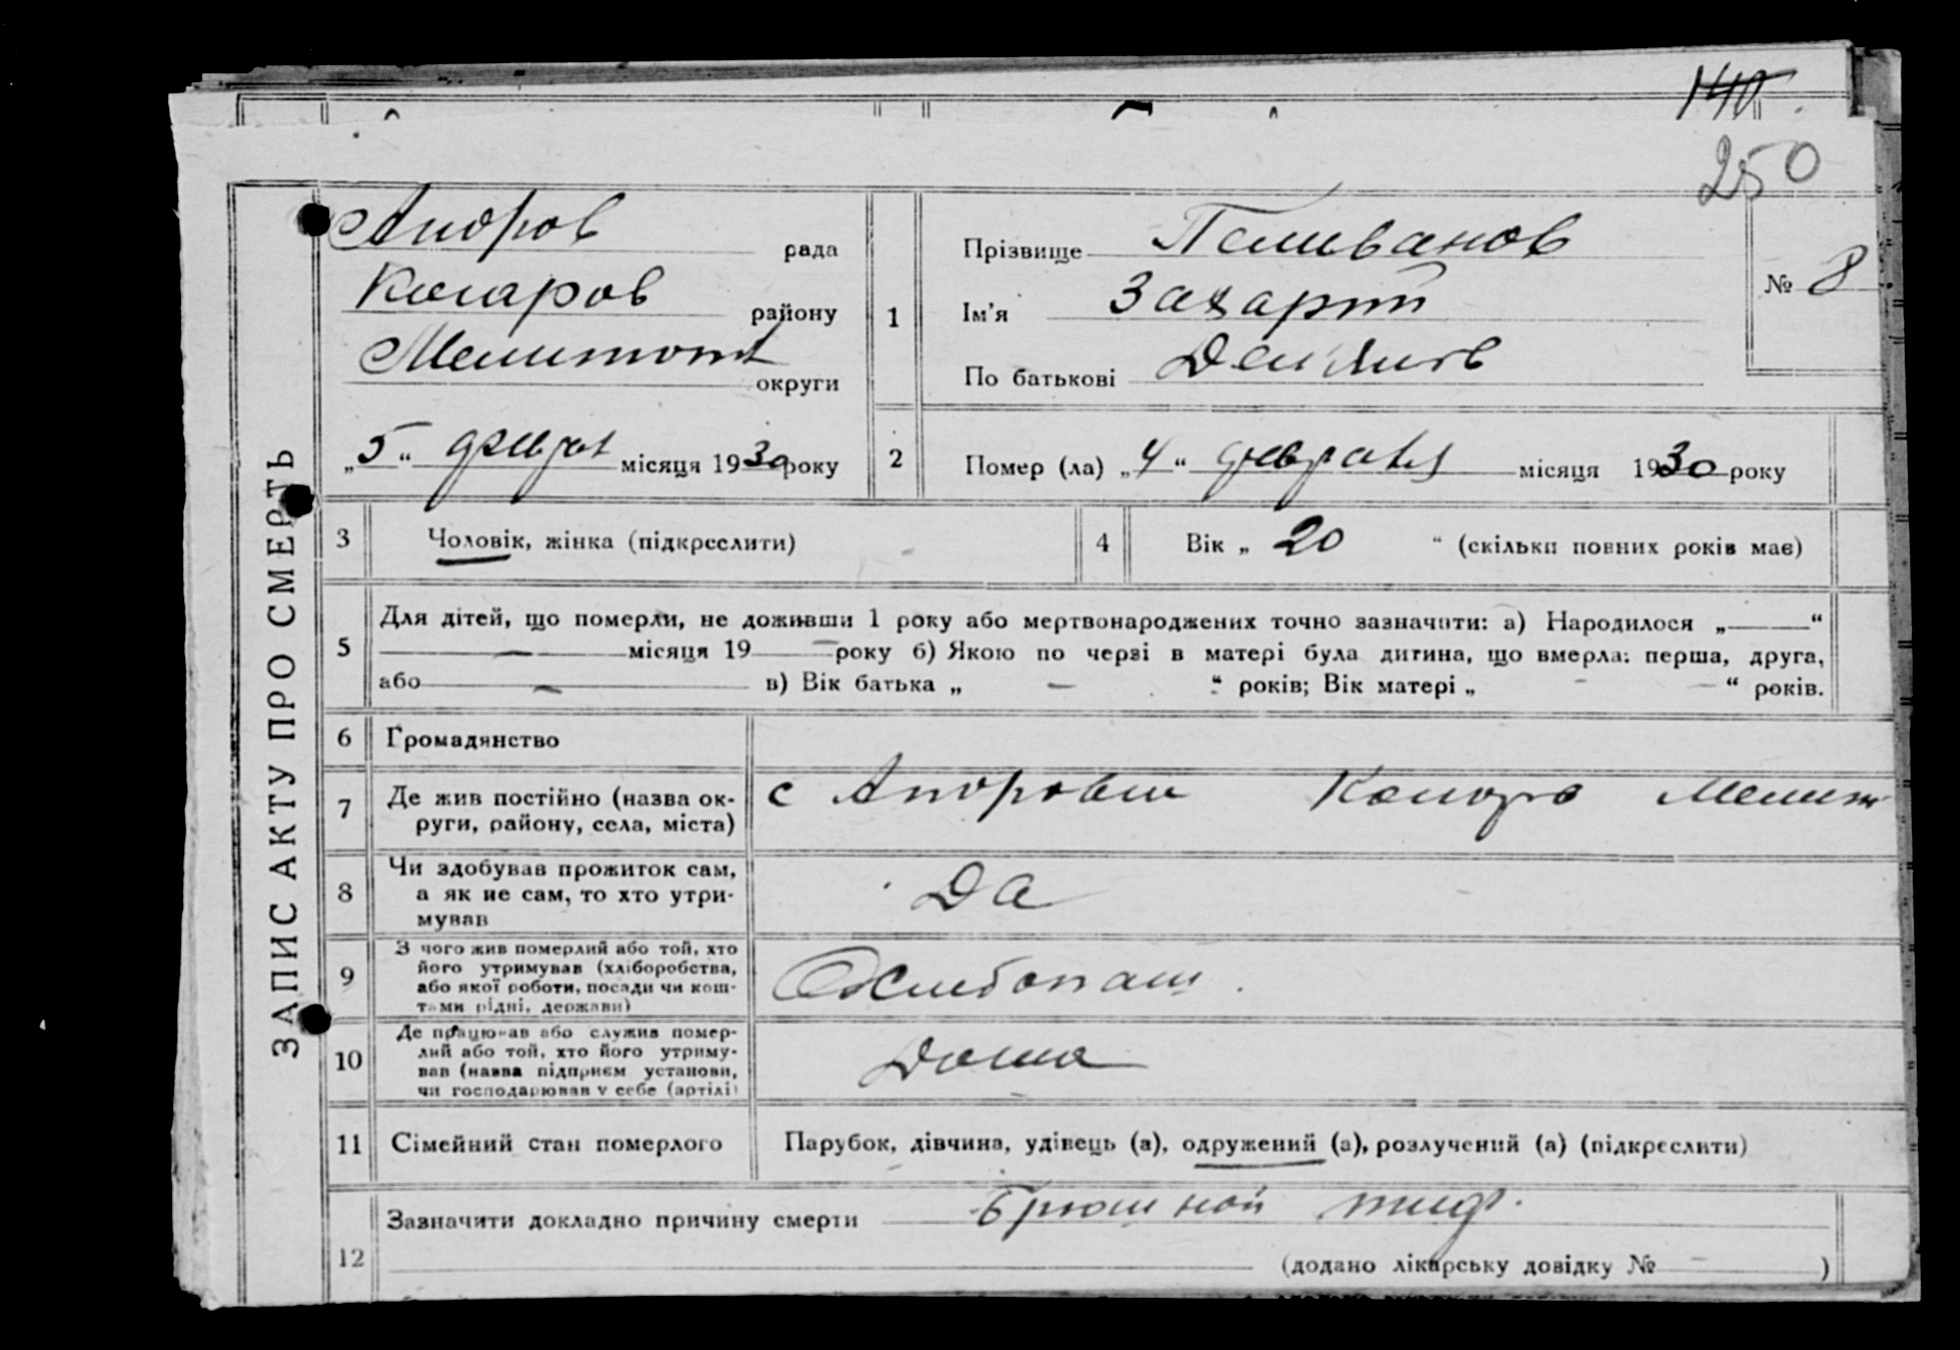 140
250
Андров рада
Комаров району
Мелитоп округи
„5“ феврал місяця 1930 року
1
Прізвище Пеливанов
Ім'я Захарій
По батькові
№ 8
2
Помер (ла) „4“ февраля місяця 1930 року
ЗАПИС АКТУ ПРО СМЕРТЬ
3 Чоловік, жінка (підкреслити)
4 Вік „ 20 “ (скільки повних років має)
5 Для дітей, що померли, не доживши 1 року або мертвонароджених точно зазначити: а) Народилося „ “
місяця 19 року б) Якою по черзі в матері була дитина, що вмерла: перша, друга,
або в) Вік батька „ “ років; Вік матері „ “ років.
6 Громадянство
7 Де жив постійно (назва ок-
руги, району, села, міста)
с Мелит
8 Чи здобував прожиток сам,
а як не сам, то хто утри-
мував
Да
9 З чого жив померлий або той, хто
його утримував (хліборобства,
або якої роботи, посади чи кош-
тами рідні, держави)
Хлибопаш.
10 Де працював або служив помер-
лий або той, хто його утриму-
вав (назва підприєм установи,
чи господарював у себе (артілі)
Дома
11 Сімейний стан померлого
Парубок, дівчина, удівець (а), одружений (а), розлучений (а) (підкреслити)
12 Зазначити докладно причину смерти Брюшной тиф.
(додано лікарську довідку № )